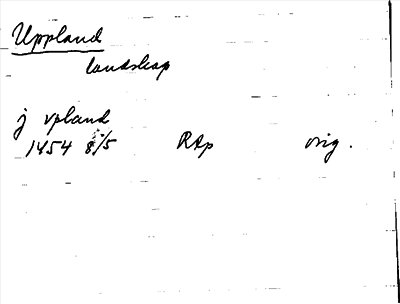 Uppland
landskap
j vpland
1454 8/5 RAp orig.